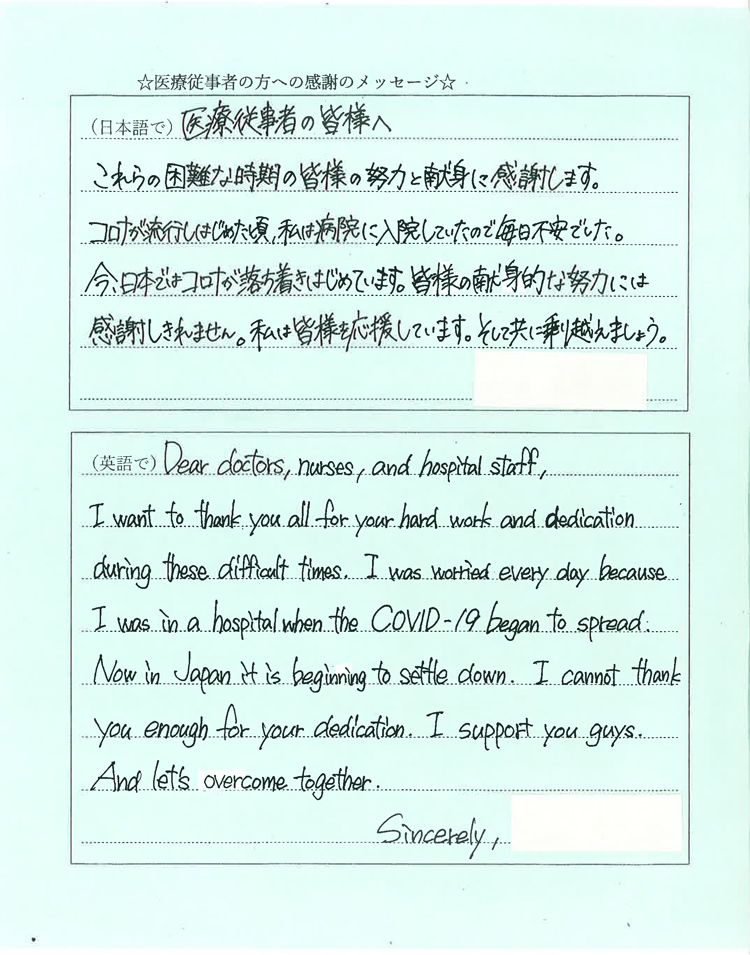 ☆医療従事者の方への感謝のメッセージ☆
(日本語で) 医療従事者の皆様へ
これらの困難な時期の皆様の努力と献身に感謝します。
コロナが流行しはじめた頃、私は病院に入院していたので毎日不安でした。
今、日本ではコロナが落ち着きはじめています。皆様の献身的な努力には
感謝しきれません。私は皆様を応援しています。そして共に乗り越えましょう。
(英語で) Dear doctors, nurses, and hospital staff,
I want to thank you all for your hard work and dedication
during these difficult times. I was worried every day because
I was in a hospital when the COVID-19 began to spread.
Now in Japan it is beginning to settle down. I cannot thank
you enough for your dedication. I support you guys.
And let's overcome together.
Sincerely,